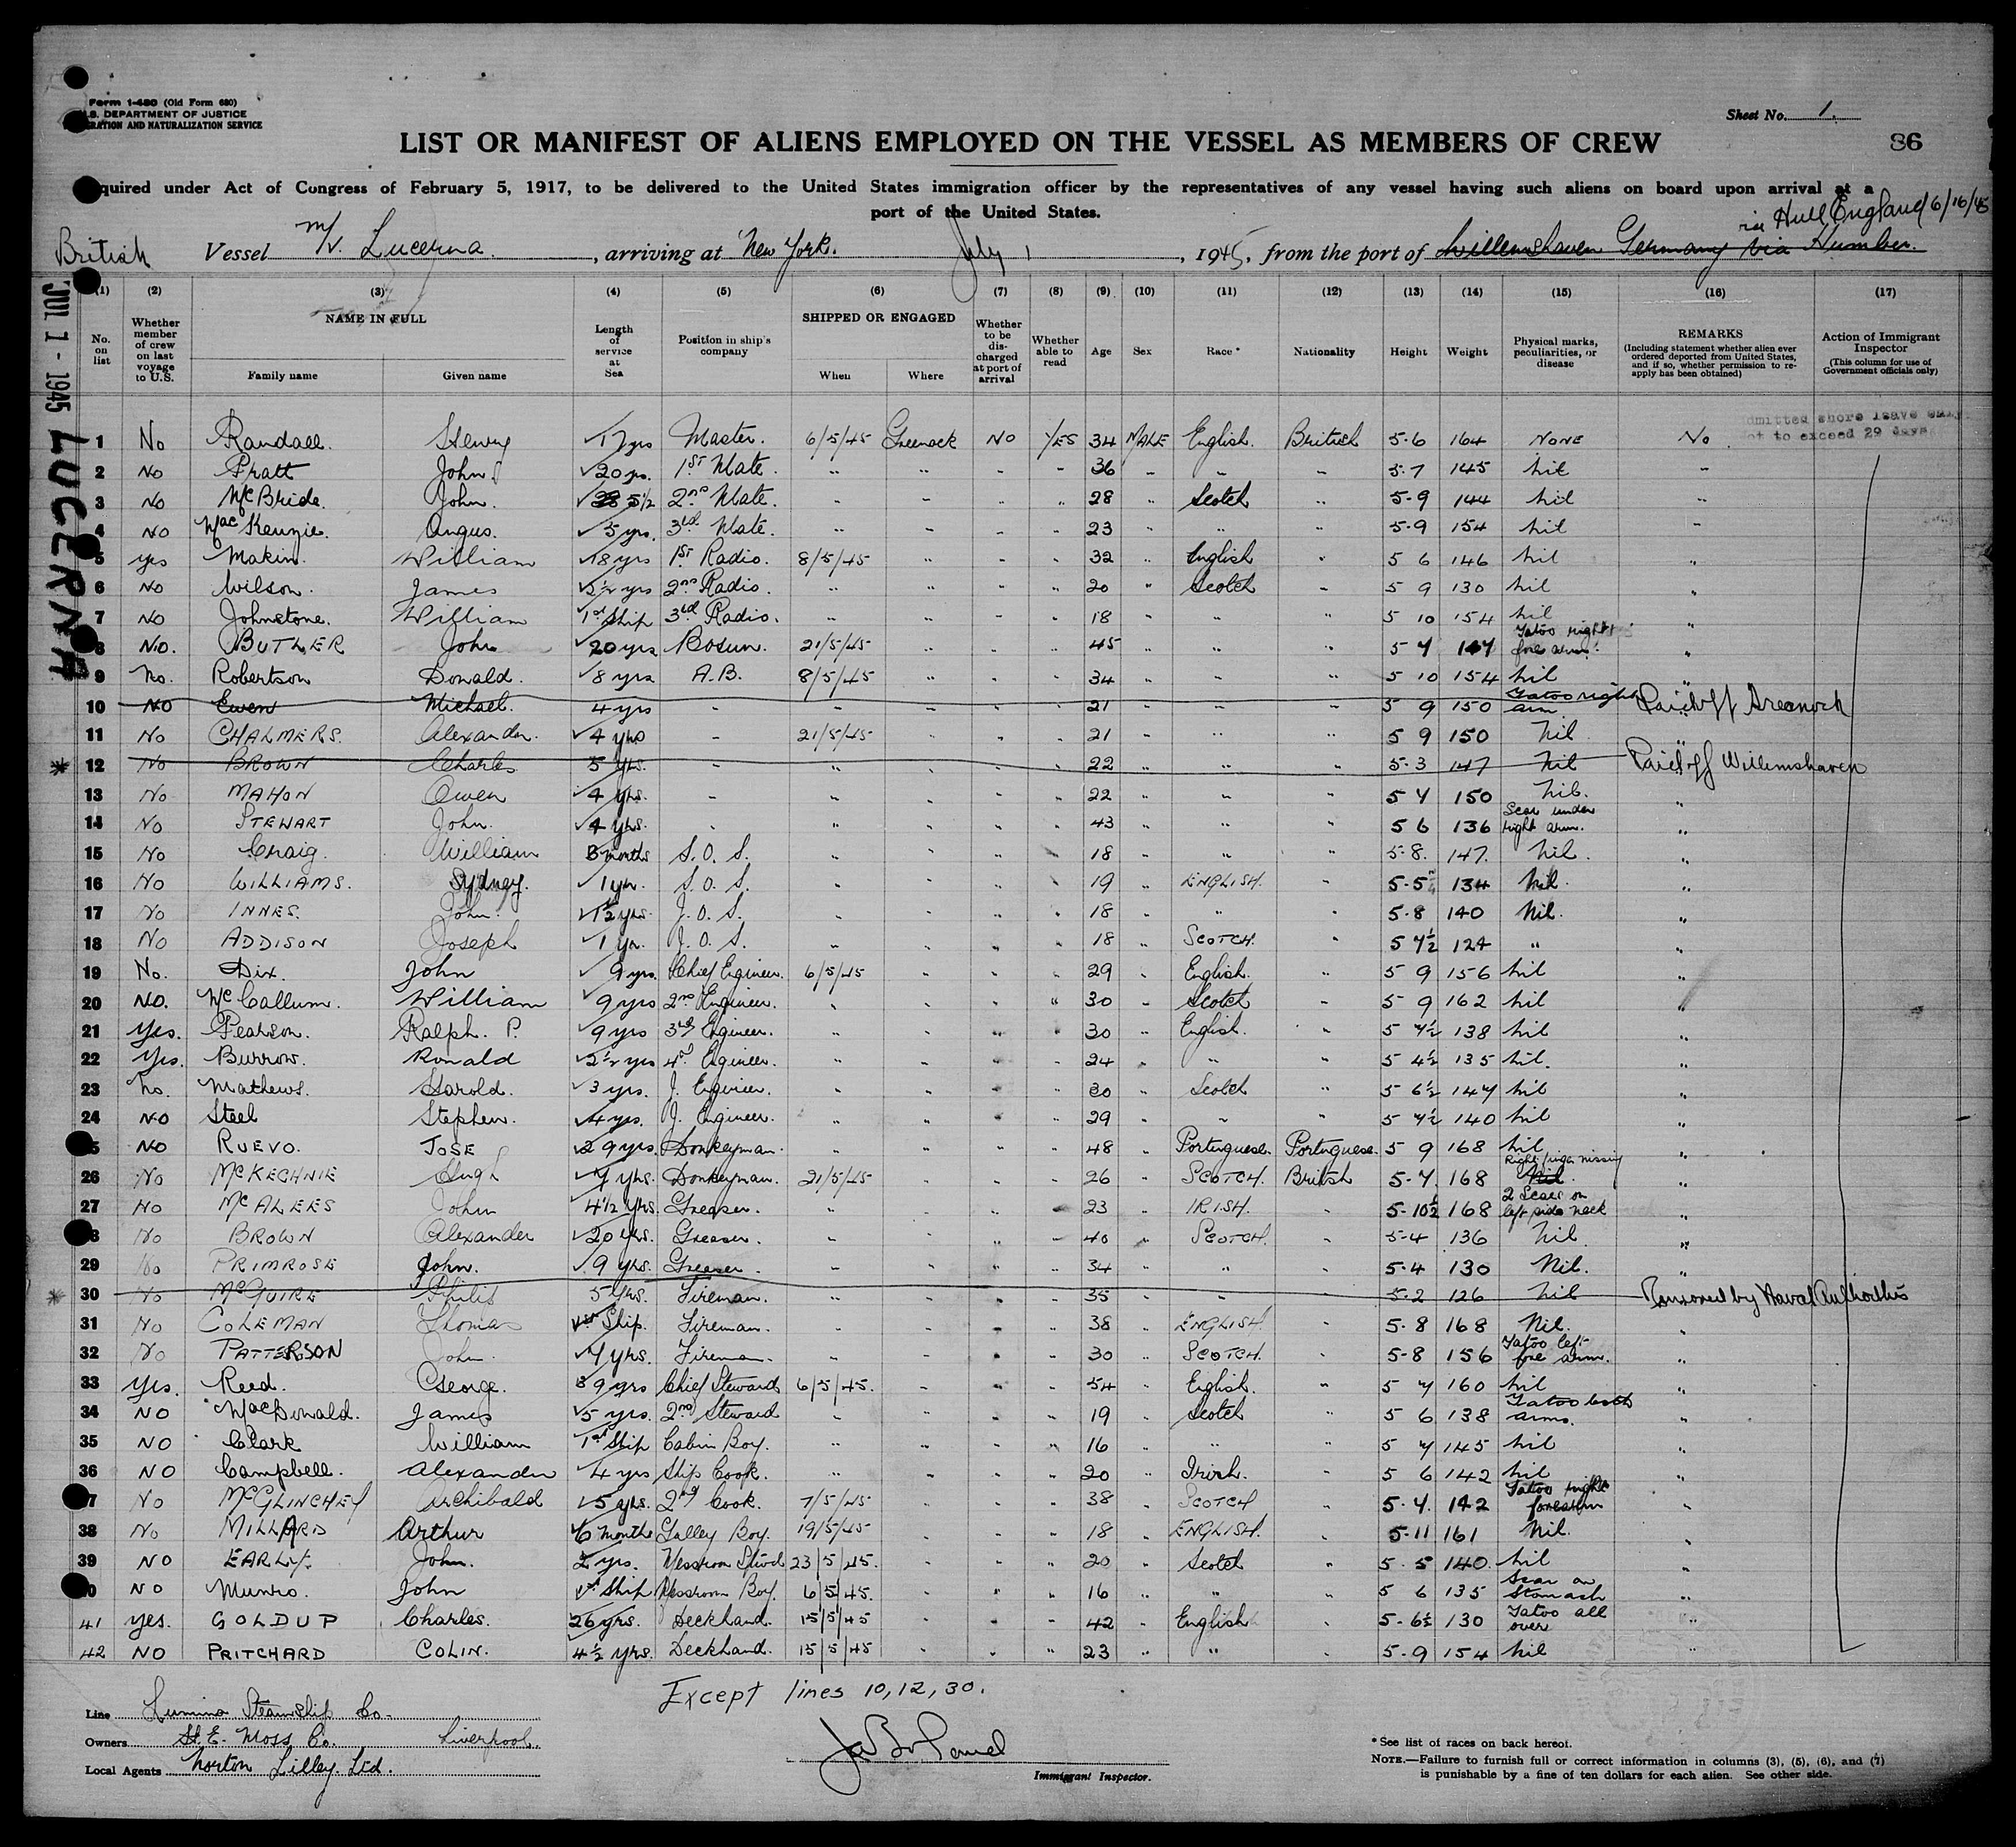 Form 1-480 (Old Form 680)
U.S. DEPARTMENT OF JUSTICE
IMMIGRATION AND NATURALIZATION SERVICE
Sheet No. 1.
LIST OR MANIFEST OF ALIENS EMPLOYED ON THE VESSEL AS MEMBERS OF CREW
86
quired under Act of Congress of February 5, 1917, to be delivered to the United States immigration officer by the representatives of any vessel having such aliens on board upon arrival at a
port of the United States.
via Hull England 6/16/45
British Vessel M/V. Lucerna, arriving at New York. July 1, 1945, from the port of Willemshaven Germany via Humber.
JUL 1 - 1945 LUCERNA
(1) (2) (3) (4) (5) (6) (7) (8) (9) (10) (11) (12) (13) (14) (15) (16) (17)
No. on list
Whether member of crew on last voyage to U.S.
NAME IN FULL
Family name Given name
Length of service at Sea
Position in ship's company
SHIPPED OR ENGAGED
When Where
Whether to be discharged at port of arrival
Whether able to read
Age Sex Race* Nationality Height Weight
Physical marks, peculiarities, or disease
REMARKS
(Including statement whether alien ever ordered deported from United States, and if so, whether permission to re-apply has been obtained)
Action of Immigrant Inspector
(This column for use of Government officials only)
admitted shore leave only
not to exceed 29 days
1 No Randall. Henry 17 yrs Master. 6/5/45 Greenock NO YES 34 MALE English. British 5-6 164 NONE No
2 NO Pratt John 20 yrs. 1st Mate. " " - " 36 " " " 5-7 145 Nil "
3 NO McBride. John. 5½ 2nd Mate. " " - " 28 " Scotch " 5-9 144 Nil "
4 NO MacKenzie. Angus. 5 yrs. 3rd Mate. " " - " 23 " " " 5-9 154 Nil "
5 yes Makin. William 8 yrs 1st Radio. 8/5/45 " - " 32 " English " 5 6 146 Nil "
6 NO Wilson. James 2½ yrs 2nd Radio. " " " " 20 " Scotch " 5 9 130 Nil "
7 NO Johnstone. William 1st Ship 3rd Radio. " " " " 18 " " " 5 10 154 Nil "
8 No. BUTLER John 20 yrs Bosun. 21/5/45 " " " 45 " " " 5 7 147 Tatoo right fore arm. "
9 No. Robertson Donald. 8 yrs A.B. 8/5/45 " " " 34 " " " 5 10 154 Nil "
10 NO Ewen Michael. 4 yrs " " " " " 21 " " " 5 9 150 Tatoo right arm Paid off Greenock
11 No CHALMERS. Alexander. 4 yrs " 21/5/45 " " " 21 " " " 5 9 150 Nil "
* 12 No BROWN Charles 5 yrs. " " " " " 22 " " " 5-3 147 Nil Paid off Willemshaven
13 No MAHON Owen 4 yrs. " " " " " 22 " " " 5 7 150 Nil. "
14 No STEWART John. 4 yrs. " " " " " 43 " " " 5 6 136 Scar under right arm. "
15 No Craig. William 3 months S.O.S. " " " " 18 " " " 5-8. 147. Nil. "
16 No WILLIAMS. Sydney. 1 yr. S.O.S. " " " " 19 " ENGLISH. " 5-5 134 Nil. "
17 No INNES. John. 1½ yrs. J.O.S. " " " " 18 " " " 5-8 140 Nil. "
18 No ADDISON Joseph 1 yr. J.O.S. " " " " 18 " SCOTCH. " 5 7½ 124 " "
19 No. Dix. John 9 yrs. Chief Egineer. 6/5/45 " " " 29 " English. " 5 9 156 Nil "
20 NO. McCallum. William 9 yrs 2nd Engineer. " " " " 30 " Scotch " 5 9 162 Nil "
21 Yes. Pearson. Ralph. P. 9 yrs 3rd Egineer. " " " " 30 " English. " 5 7½ 138 Nil "
22 Yes. Burrow. Ronald 2½ yrs 4th Egineer. " " " " 24 " " " 5 4½ 135 Nil. "
23 No. Mathews. Harold. 3 yrs. J. Egineer. " " " " 30 " Scotch " 5 6½ 147 Nil "
24 NO Steel Stephen. 4 yrs. J. Engineer. " " " " 29 " " " 5 7½ 140 Nil "
25 NO RUEVO. JOSE 29 yrs. Donkeyman. " " " " 48 " Portuguese. Portuguese. 5 9 168 Nil "
26 No McKECHNIE Hugh 7 yrs. Donkeyman. 21/5/45 " " " 26 " SCOTCH. British 5-7. 168 Right finger missing Nil. "
27 No McALEES John 4½ yrs. Greaser. " " " " 23 " IRISH. " 5-10½ 168 2 Scars on left side neck "
28 No BROWN Alexander 20 yrs. Greaser. " " " " 40 " SCOTCH. " 5-4 136 Nil. "
29 No PRIMROSE John. 9 yrs. Greaser. " " " " 34 " " " 5-4 130 Nil. "
* 30 No McGUIRE Philip 5 yrs. Fireman. " " " " 35 " " " 5-2 126 Nil Removed by Naval Authorities
31 No COLEMAN Thomas 1st Ship. Fireman. " " " " 38 " ENGLISH. " 5-8 168 Nil. "
32 No PATTERSON John. 7 yrs. Fireman. " " " " 30 " SCOTCH. " 5-8 156 Tatoo left fore arm. "
33 Yes. Reed. George. 9 yrs Chief Steward 6/5/45. " " " 54 " English. " 5 7 160 Nil "
34 NO MacDonald. James 5 yrs. 2nd Steward " " " " 19 " Scotch " 5 6 138 Tatoo both arms. "
35 NO Clark William 1st Ship Cabin Boy. " " " " 16 " " " 5 7 145 Nil "
36 NO Campbell. Alexander 4 yrs Ship Cook. " " " " 20 " Irish. " 5 6 142 Nil "
37 No McGLINCHEY Archibald 5 yrs. 2nd Cook. 7/5/45 " " " 38 " SCOTCH " 5-7. 142 Tatoo right forearm "
38 No MILLARD Arthur 6 months Galley Boy. 19/5/45 " " " 18 " ENGLISH. " 5-11 161 Nil. "
39 NO EARLY. John. 2 yrs. Messroom Stwd 23/5/45. " " " 20 " Scotch " 5-5 140. Nil "
40 NO Munro. John 1st Ship Messroom Boy. 6/5/45. " " " 16 " " " 5 6 135 Scar on Stomach "
41 yes. GOLDUP Charles. 26 yrs. Deckhand. 15/5/45 " " " 42 " English " 5-6½ 130 Tatoo all over "
42 NO PRITCHARD COLIN. 4½ yrs. Deckhand. 15/5/45 " " " 23 " " " 5-9 154 Nil "
Except lines 10, 12, 30.
Line Lumina Steamship Co.
Owners H.E. Moss Co. Liverpool.
Local Agents Norton Lilley Ltd.
Immigrant Inspector.
*See list of races on back hereof.
NOTE.—Failure to furnish full or correct information in columns (3), (5), (6), and (7)
is punishable by a fine of ten dollars for each alien. See other side.